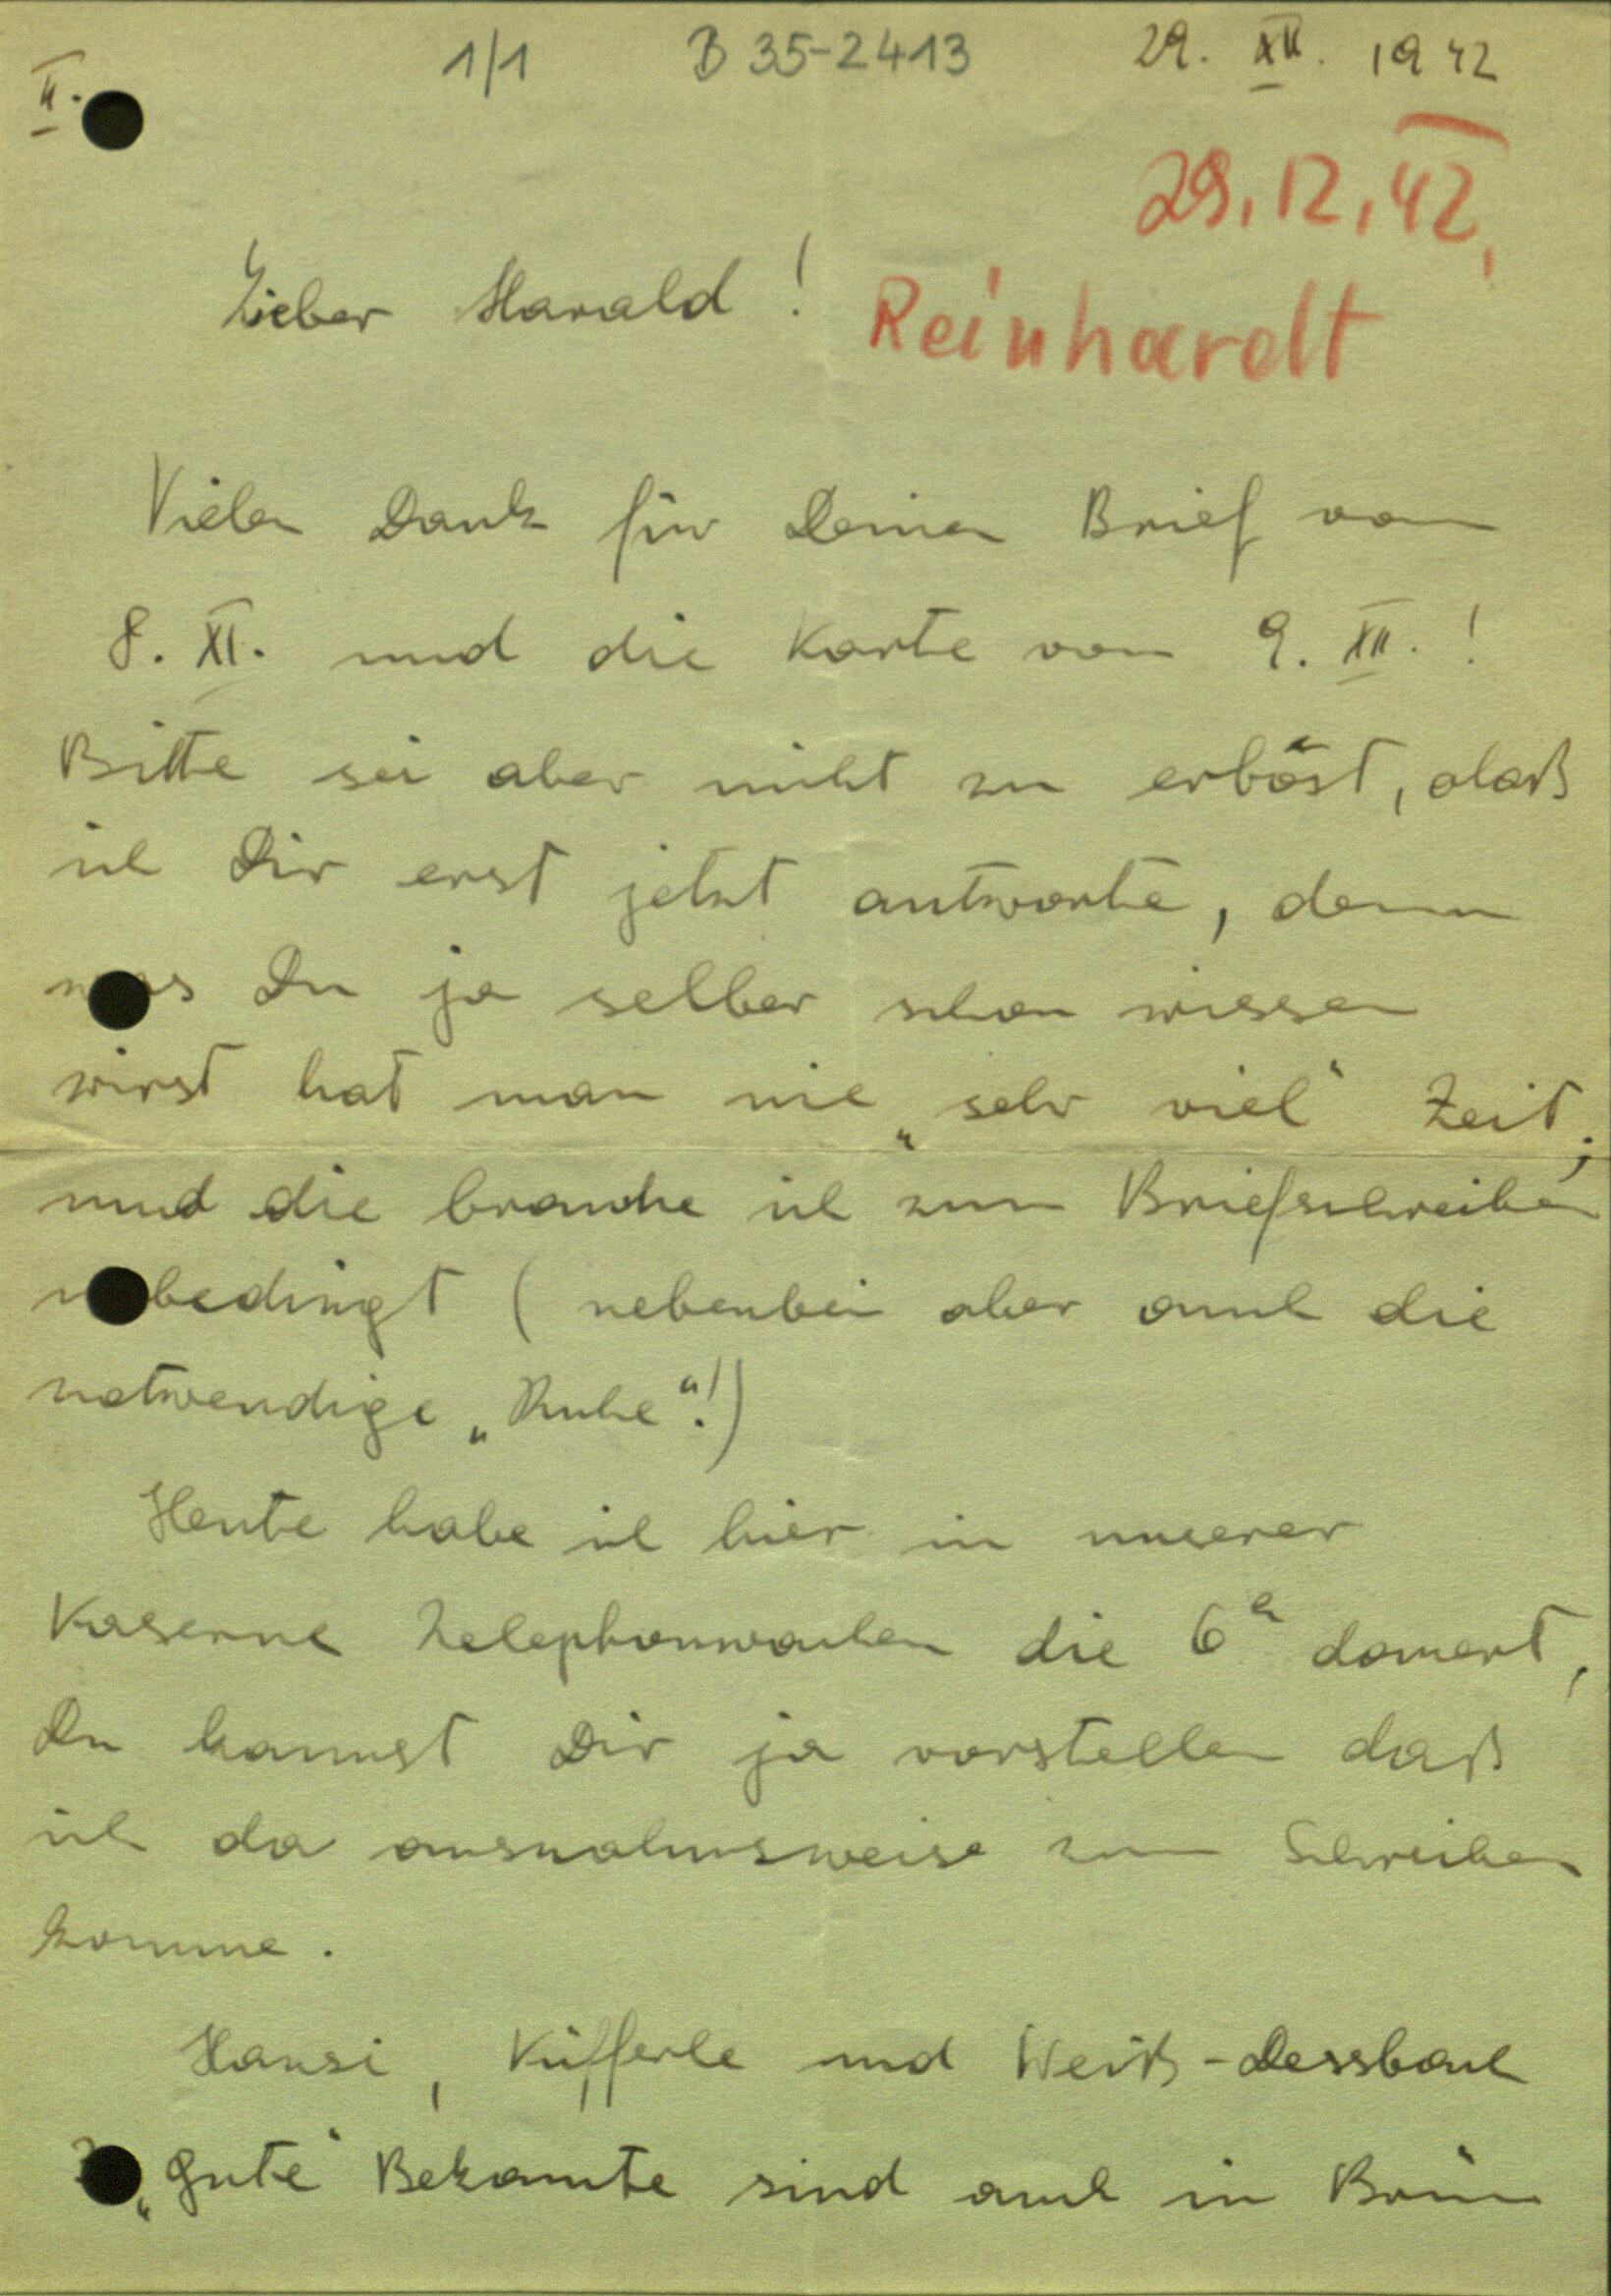 II.
1/1 B 35-2413 29. XII. 1942
29.12.42.
Lieber Harald!
Reinhardt
Vielen Dank für Deinen Brief vom
8. XI. und die Karte vom 9. XII.!
Bitte sei aber nicht zu erböst, daß
ich Dir erst jetzt antworte, denn
was Du ja selber schon wissen
wirst hat man nie „sehr viel" Zeit;
und die brauche ich zum Briefschreiben
unbedingt (nebenbei aber auch die
notwendige „Ruhe"!)
Heute habe ich hier in unserer
Kaserne Telephonwachen die 6h dauert,
Du kannst Dir ja vorstellen daß
ich da ausnahmsweise zum Schreiben
komme.
Hansi, Küfferle und Weiß-Dessbach
„gute" Bekannte sind auch in Brünn